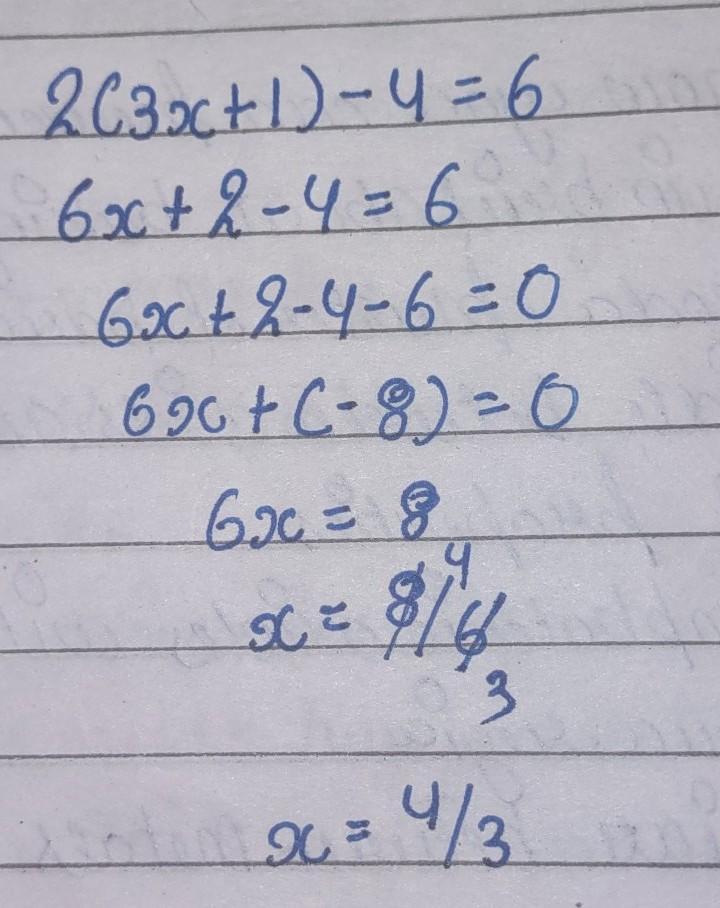 2(3x+1)-4=6
6x+2-4=6
6x+2-4-6=0
6x+(-8)=0
6x=8
x=8/6 4
3
x=4/3